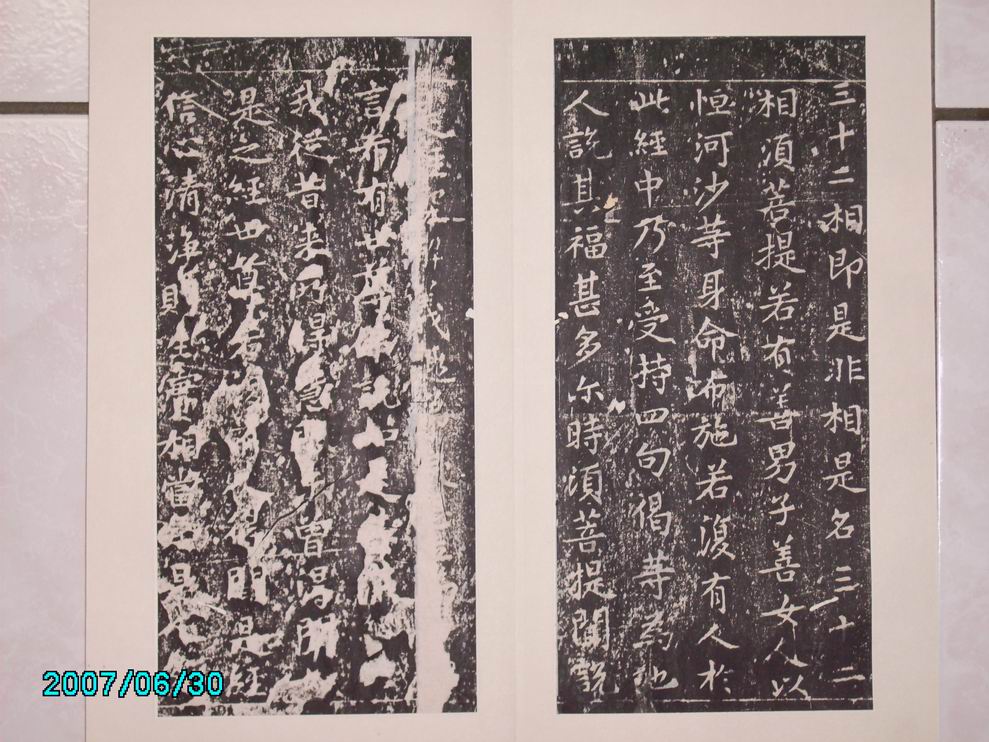 三十二相即是非相是名三十二
相須菩提若有善男子善女人以
恒河沙等身命布施若復有人於
此經中乃至受持四句偈等為他
人說其福甚多尔時須菩提聞說
是經深解義趣
言希有世尊佛說如是甚深
我從昔来所得慧眼未曾得聞如
是之經世尊若復有人得聞是經
信心清净則生實相當知是人
2007/06/30